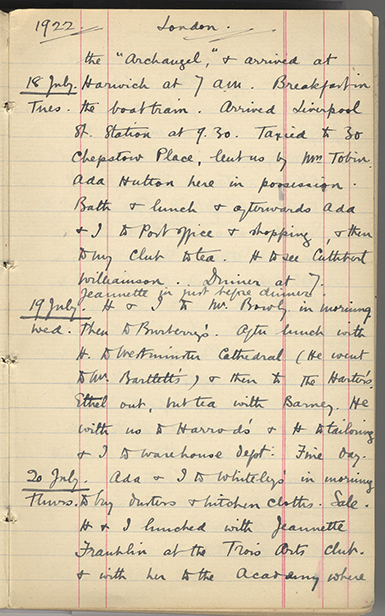 1922. London.
the "Archangel", & arrived at
18 July. Harwich at 7 a.m. Breakfast in
Tues. the boat train. Arrived Liverpool
St. Station at 9.30. Taxied to 30
Chepstow Place, lent us by Mrs Tobin.
Ada Hutton here in possession.
Bath & lunch & afterwards Ada
& I to Post Office & shopping, & then
to my Club to tea. H to see Cuthbert
Williamson.. Dinner at 7.
Jeannette in just before dinner.
19 July. H & I to Mr. Bowly in morning
Wed. Then to Burberry's. After lunch with
H. to Westminster Cathedral (He went
to Mr. Bartlett's) & then to the Harters.
Ethel out, but tea with Barney. He
with us to Harrod's & H to tailoring
& I to warehouse dept. Fine day.
20 July. Ada & I to Whiteley's in morning
Thurs. to buy dusters & kitchen cloths. Sale.
H & I lunched with Jeannette
Franklin at the Trois Arts Club.
& with her to the Academy where